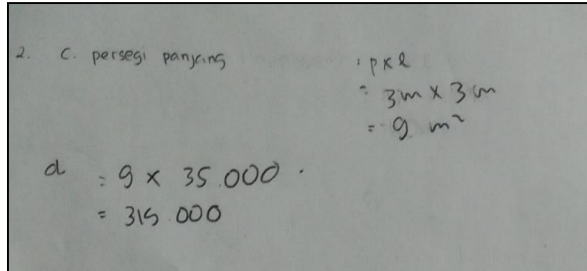 2. C. persegi panjang : p x l
= 3m x 3 m
= 9 m²
d = 9 x 35.000.
= 315.000